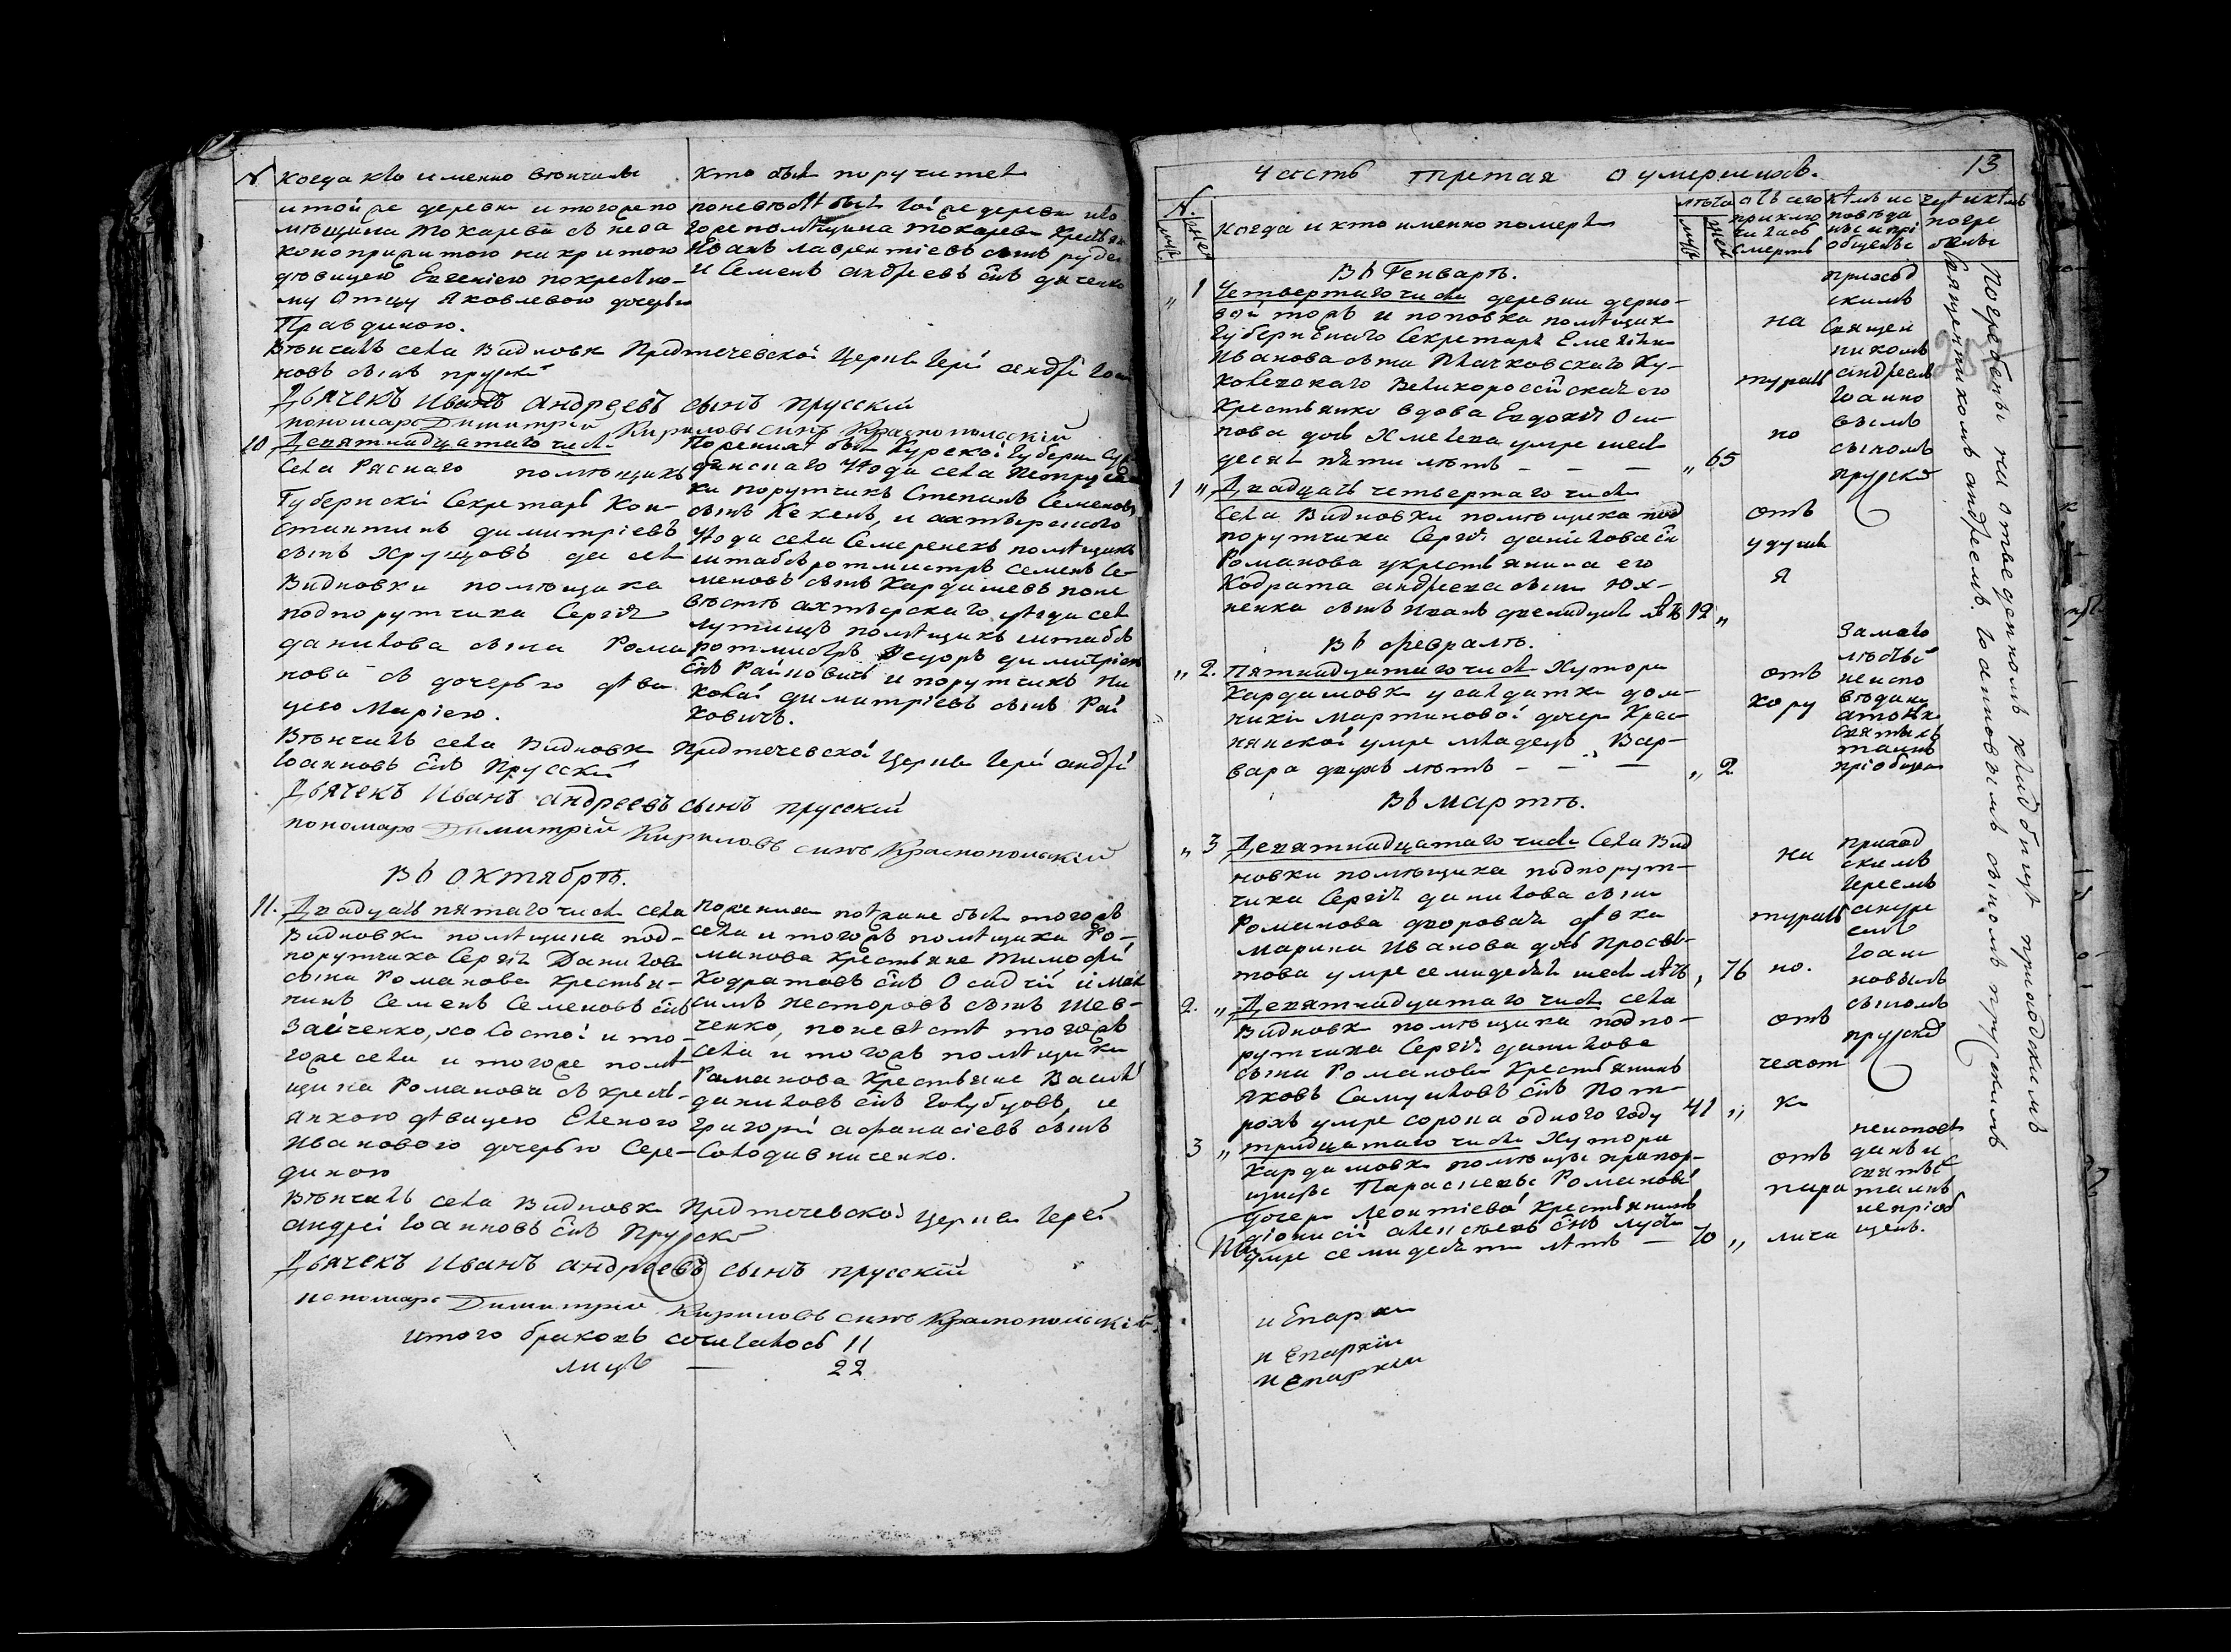 N Когда кто именно венчаны
Кто были поручители
и той же деревни и того же по
мещика Токарева с не за
конноприжитою на крытою
девицею Евгениею по крестно-
му отцу Яковлевою дочерью
Правдиною.
по невесте были той же деревни и то
го же помещика Токарева крестьяне
Иванъ Лаврентиевъ сынъ
и Семенъ Андреевъ сынъ
Венчалъ села Видновки Предтечевской Церкви Іерей Андрей Іоан
новъ сынъ Прускій
Дьячекъ Иванъ Андреевъ сынъ прусскій
пономарь Димитрій Кириловъ синъ Краснопольскій
10 Девятнадцатаго числа
села Ряснаго помѣщикъ
Губернскій Секретарь Кон-
стантинъ Димитріевъ
сынъ Хрущовъ да села
Видновки помѣщика
подпорутчика Сергія
Данилова сына Рома
нова съ дочерью дѣви
цею Маріею.
По жениху были Курской Губерніи Суд
жанскаго уѣзда села
порутчикъ Степанъ Семеновъ
сынъ и ахтырскаго
уѣзда села Семеренекъ помѣщикъ
штабсъ ротмистръ Семенъ Се-
меновъ сынъ Кардашевъ по не
вѣстѣ ахтырскаго уѣзда села
Лутищъ помѣщикъ штабсъ
ротмистръ Ѳедоръ Димитріевъ
сынъ Райковичъ и порутчикъ Ни
колай Димитріевъ сынъ Рай
ковичъ.
Вѣнчалъ села Видновки Предтечевской Церкви Іерей Андрей
Іоанновъ сынъ Прусскій
Дьячекъ Иванъ андреевъ сынъ прусскій
пономарь Димитрій Кириловъ синъ Краснопольскій
Въ Октябрѣ.
11. Двадцать пятаго числа села
Видновки помѣщика под-
порутчика Сергія Данилова
сына Романова крестья-
нинъ Семенъ Семеновъ сынъ
Зайченко, холостой и то-
го же села и того же помѣ
щика Романова съ кресть-
янкою дѣвицею Еленою
Ивановою дочерью Сере-
диною
По жениху поѣзжане были того жъ
села и того жъ помѣщика Ро-
манова крестьяне Тимофей
Кодратовъ сынъ Осадчій и Мак
симъ Несторовъ сынъ Шев-
ченко, по невѣстѣ того жъ
села и того жъ помѣщика
Романова крестьяне Василій
Даниловъ сынъ Голубцовъ и
Григорій Афанасіевъ сынъ
Солодивниченко.
Вѣнчалъ села Видновки Предтечевской Церкви Іерей
Андрей Іоанновъ сынъ Прускій
Дьячекъ Иванъ андреевъ сынъ прусскій
пономарь Димитрій Кириловъ синъ Краснопольскій
Итого браковъ сочеталось 11
лицъ — 22
Часть третая о умершихъ. 13
N. Когда и кто именно померъ
лѣта
муж жен
отъ чего приключилась смерть
кѣмъ исповѣданы и пріобщены
гдѣ и кѣмъ погребены
Въ Генварѣ.
„ 1 Четвертаго числа деревни Дерно-
вой тожъ и Поповка помѣщика
Губернскаго Секретаря Емеліана
Иванова сына
Великороссійская его
крестьянка вдова Евдокія Оси-
пова дочь Хмелева умре шесть
десятъ пяти лѣтъ — — „ 65
на
турально
приход
скимъ
Священ
никомъ
андреемъ
Іоанно
вымъ
сыномъ
прускимъ
1 „ Двадцать четвертаго числа
села Видновки помѣщика под
порутчика Сергія Данилова сына
Романова у крестьянина его
Кодрата Андреева сына Юх-
ненка сынъ Иванъ двенадцати лѣтъ 12 „
отъ
удушья
Въ Февралѣ.
„ 2. Пятнадцатаго числа Хутора
Кардашовки у салдатки Дом-
никіи Мартиновой дочери Крас-
нянской умре младенецъ Вар-
вара двухъ лѣтъ — — „ 2
отъ
кору
за мало
лѣтствіемъ
не испо
вѣдана
а тоѣхъ
Святыхъ
таинъ
пріобщена
Въ Мартѣ.
„ 3 Девятнадцатаго числа села Вид
новки помѣщика подпорут-
чика Сергія Данилова сына
Романова дворовая дѣвка
Марина Иванова дочь Просве-
това умре семидесять шести лѣтъ „ 76
на
турально.
приход
скимъ
Іереемъ
андре
емъ
Іоан
новымъ
сыномъ
прускимъ
2. „ Девятнадцатаго числа села
Видновки помѣщика подпо-
рутчика Сергія Данилова
сына Романова крестьянинъ
Яковъ Самуиловъ сынъ Пот-
рохъ умре сорока одного году 41 „
отъ
чехот
ки
3 „ тридцатаго числа Хутора
Кардашовки помѣщицы прапор-
щицы Парасковьи Романовы
дочери Леонтіевой крестьянинъ
Діонисій Алексѣевъ сынъ
умре семидесяти лѣтъ — 70 „
отъ
пара
лича
неисповѣ
данъ и
святыхъ
таинъ
непріоб
щенъ.
Погребены на отведенномъ кладбищѣ приходскимъ
Священникомъ андреемъ Іоанновымъ сыномъ прускимъ
и Епархи
и Епархіи
и Епархіи